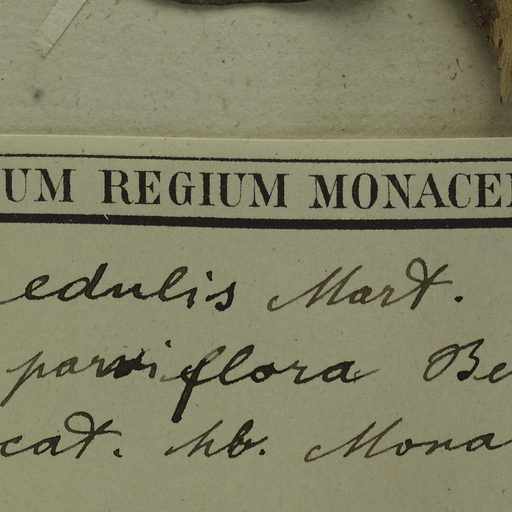 UM REGIUM MONACE
edulis Mart.
parviflora Be
cat. hb. Mona